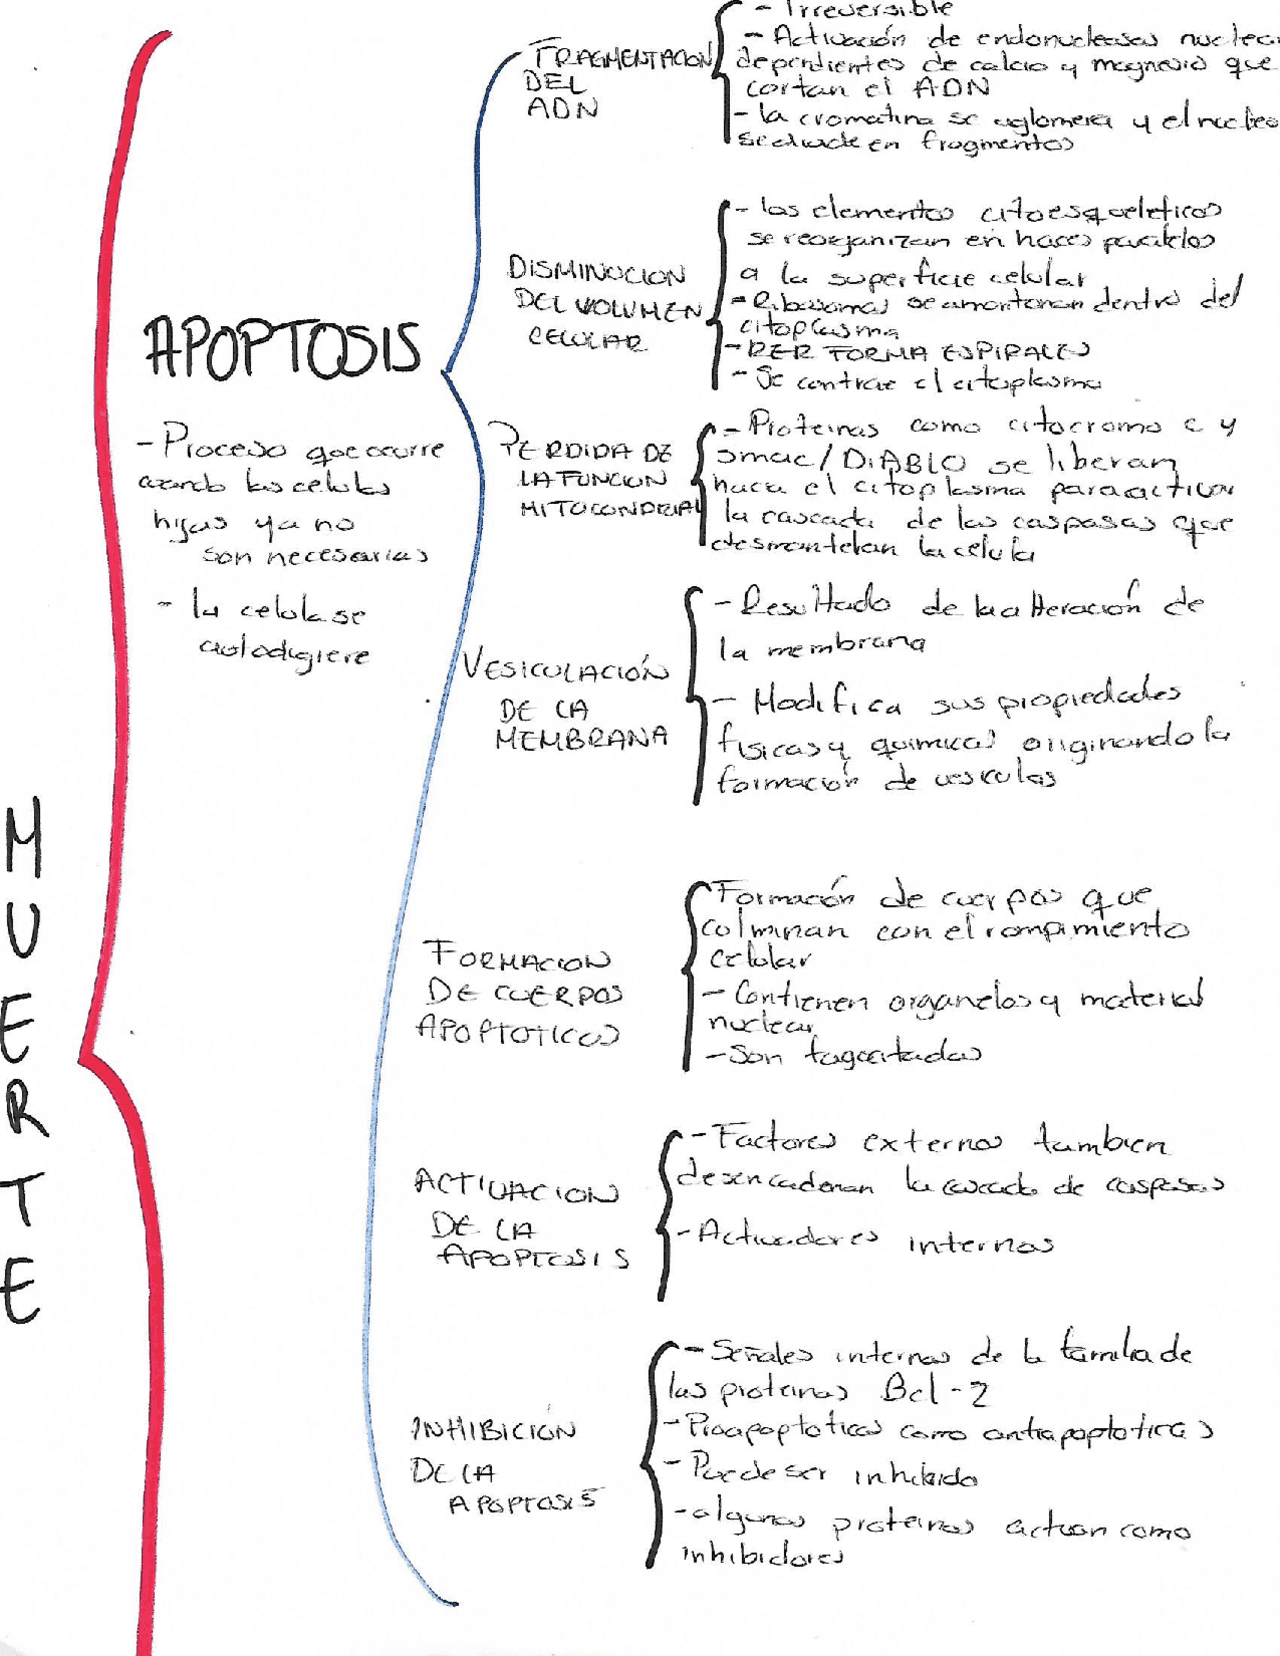 MUERTE
APOPTOSIS
- Proceso que ocurre
cuando las celulas
hijas ya no
son necesarias
- la celula se
autodigiere
FRAGMENTACION
DEL
ADN
- Irreversible
- Activación de endonucleasas nuclea
dependientes de calcio y magnesio que
cortan el ADN
- la cromatina se aglomera y el nucleo
se divide en fragmentos
DISMINUCION
DEL VOLUMEN
CELULAR
- los elementos citoesqueleticos
se reorganizan en haces paralelos
a la superficie celular
- Ribosomas se amontonan dentro del
citoplasma
- RER FORMA ESPIRALES
- Se contrae el citoplasma
PERDIDA DE
LA FUNCION
MITOCONDRIAL
- Proteinas como citocromo c y
smac/DiABLO se liberan
hacia el citoplasma para activar
la cascada de las caspasas que
desmantelan la celula
VESICULACIÓN
DE LA
MEMBRANA
- Resultado de la alteración de
la membrana
- Modifica sus propiedades
fisicas y quimicas originando la
formación de vesiculas
FORMACION
DE CUERPOS
APOPTOTICOS
Formación de cuerpos que
culminan con el rompimiento
celular
- Contienen organelos y material
nuclear
- Son fagocitados
ACTIVACION
DE LA
APOPTOSIS
- Factores externos tambien
desencadenan la cascada de caspasas
- Activadores internos
INHIBICIÓN
DE LA
APOPTOSIS
- Señales internas de la familia de
las proteinas Bcl-2
- Proapoptoticas como antiapoptoticas
- Puede ser inhibida
- algunas proteinas actuan como
inhibidores